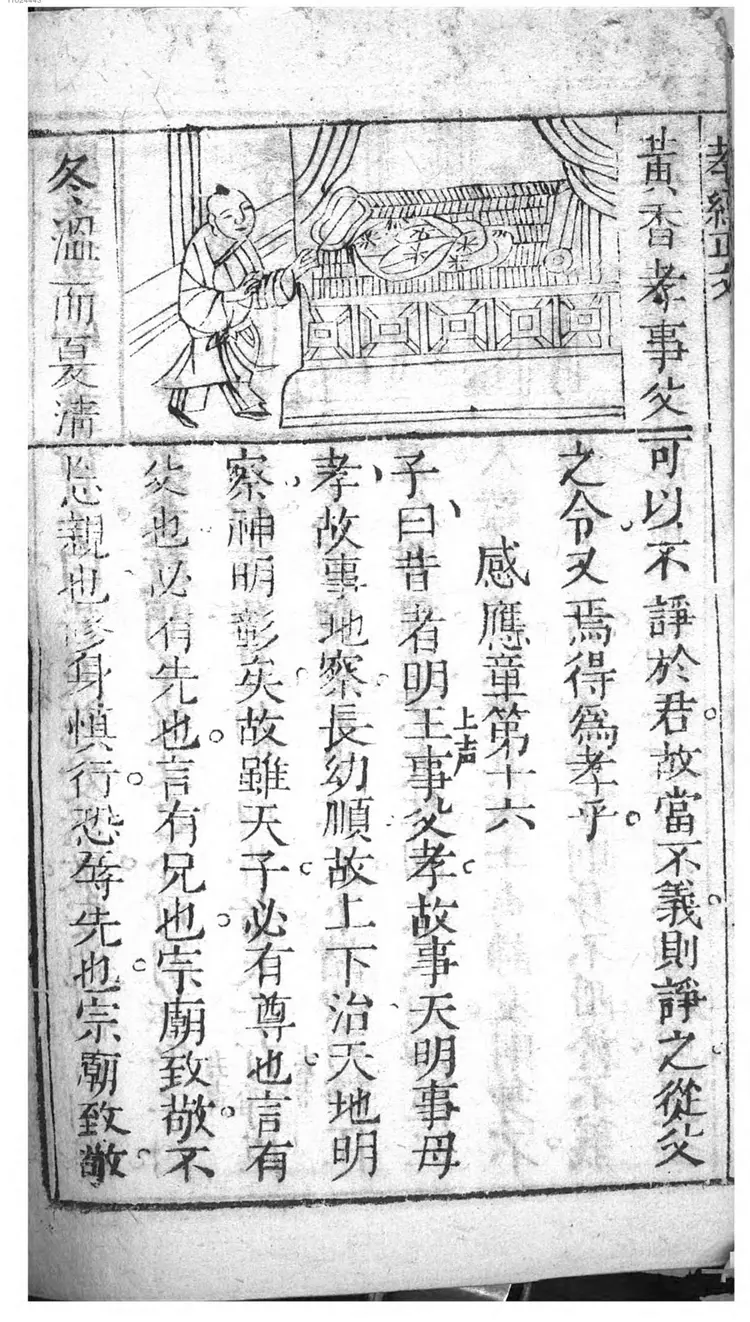 11024445
孝經正文
黃香孝事父
冬溫而夏凊
可以不諍於君故當不義則諍之從父
之令又焉得為孝乎
感應章第十六
上声
子曰昔者明王事父孝故事天明事母
孝故事地察長幼順故上下治天地明
察神明彰矣故雖天子必有尊也言有
父也必有先也言有兄也宗廟致敬不
忘親也修身慎行恐辱先也宗廟致敬